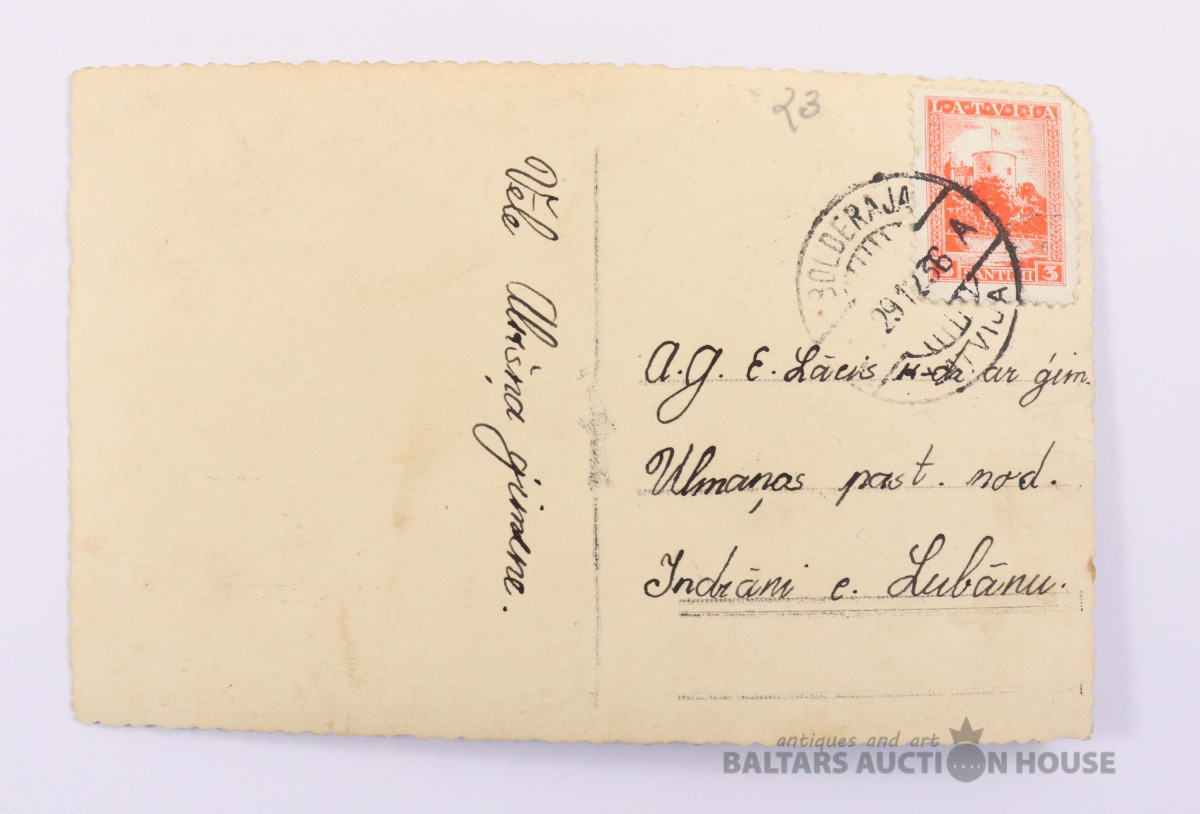 23
LATVIJA
3 SANTIMI 3
BOLDERAJA
29 12 36 A
LATVIJA
Vēlē
ģimene.
A.G. E. Lācis k-dz ar ģim.
Ulmaņas past. nod.
Indrāni c. Lubānu.
antiques and art
BALTARS AUCTION HOUSE